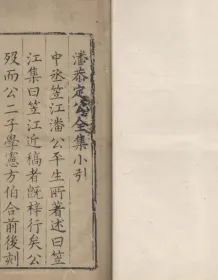 潘恭定公全集小引
中丞笠江潘公平生所著述曰笠
江集曰笠江近稿者旣梓行矣公
歿而公二子學憲方伯合前後刻